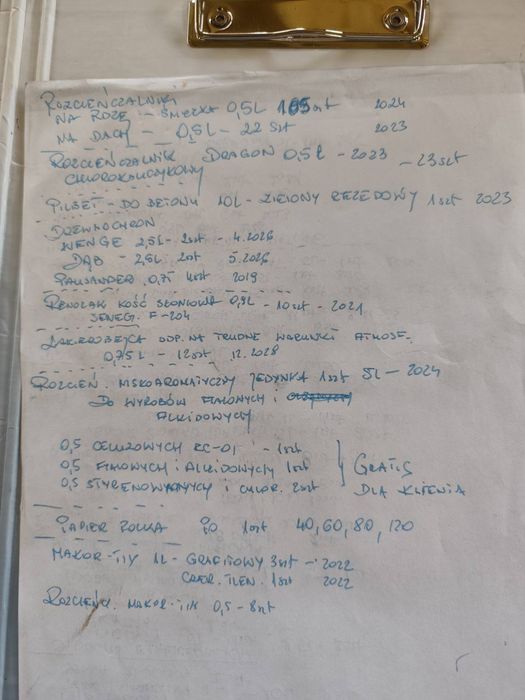 ROZCIEŃCZALNIKI
NA ROZE - ŚNIEŻKA 0,5L 105szt 2024
NA DACH - 0,5L - 22 szt 2023
ROZCIEŃCZALNIK DRAGON 0,5L - 2023 - 23szt
CHLOROKAUCZUKOWY
PILSET - DO BETONU 10L - ZIELONY REZEDOWY 1szt 2023
DREWNOCHRON
WENGE 2,5L - 2szt - 4.2026
DĄB - 2,5L 2szt 5.2026
PALISANDER 0,7l 4szt 2019
RENOLAK KOŚĆ SŁONIOWA 0,9L - 10szt - 2021
SENEG. F-204
LAKIEROBEJCA ODP. NA TRUDNE WARUNKI ATMOSF.
0,75L - 12szt 12.2028
ROZCIEŃ. NISKOAROMATYCZNY JEDYNKA 1szt 5L - 2024
DO WYROBÓW FTALOWYCH i
ALKIDOWYCH
0,5 CELULOZOWYCH RC-01 - 1szt
0,5 FTALOWYCH i ALKIDOWYCH 1szt
0,5 STYRENOWYCH i CHLOR. 2szt
GRATIS
DLA KLIENTA
PAPIER ROLKA PO 1szt 40, 60, 80, 120
MAKOR - 1L - GRAFITOWY 3szt - 2022
CZER. TLEN. 1szt 2022
ROZCIEŃ. MAKOR 0,5 - 8szt